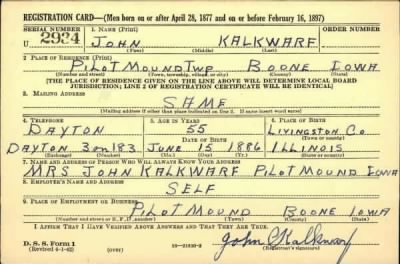 REGISTRATION CARD—(Men born on or after April 28, 1877 and on or before February 16, 1897)
SERIAL NUMBER 1. NAME (Print) ORDER NUMBER
U 2934 JOHN KALKWARF
(First) (Middle) (Last)
2. PLACE OF RESIDENCE (Print)
PILOT MOUND TWP BOONE IOWA
(Number and street) (Town, township, village, or city) (County) (State)
[THE PLACE OF RESIDENCE GIVEN ON THE LINE ABOVE WILL DETERMINE LOCAL BOARD
JURISDICTION; LINE 2 OF REGISTRATION CERTIFICATE WILL BE IDENTICAL]
3. MAILING ADDRESS
SAME
[Mailing address if other than place indicated on line 2. If same insert word same]
4. TELEPHONE 5. AGE IN YEARS 6. PLACE OF BIRTH
DAYTON 55 LIVINGSTON CO
DATE OF BIRTH (Town or county)
DAYTON 3 on 183 JUNE 15 1886 ILLINOIS
(Exchange) (Number) (Mo.) (Day) (Yr.) (State or country)
7. NAME AND ADDRESS OF PERSON WHO WILL ALWAYS KNOW YOUR ADDRESS
MRS JOHN KALKWARF PILOT MOUND IOWA
8. EMPLOYER'S NAME AND ADDRESS
SELF
9. PLACE OF EMPLOYMENT OR BUSINESS
PILOT MOUND BOONE IOWA
(Number and street or R. F. D. number) (Town) (County) (State)
I AFFIRM THAT I HAVE VERIFIED ABOVE ANSWERS AND THAT THEY ARE TRUE.
D. S. S. Form 1
(Revised 4-1-42) (over) John C Kalkwarf
(Registrant's signature)